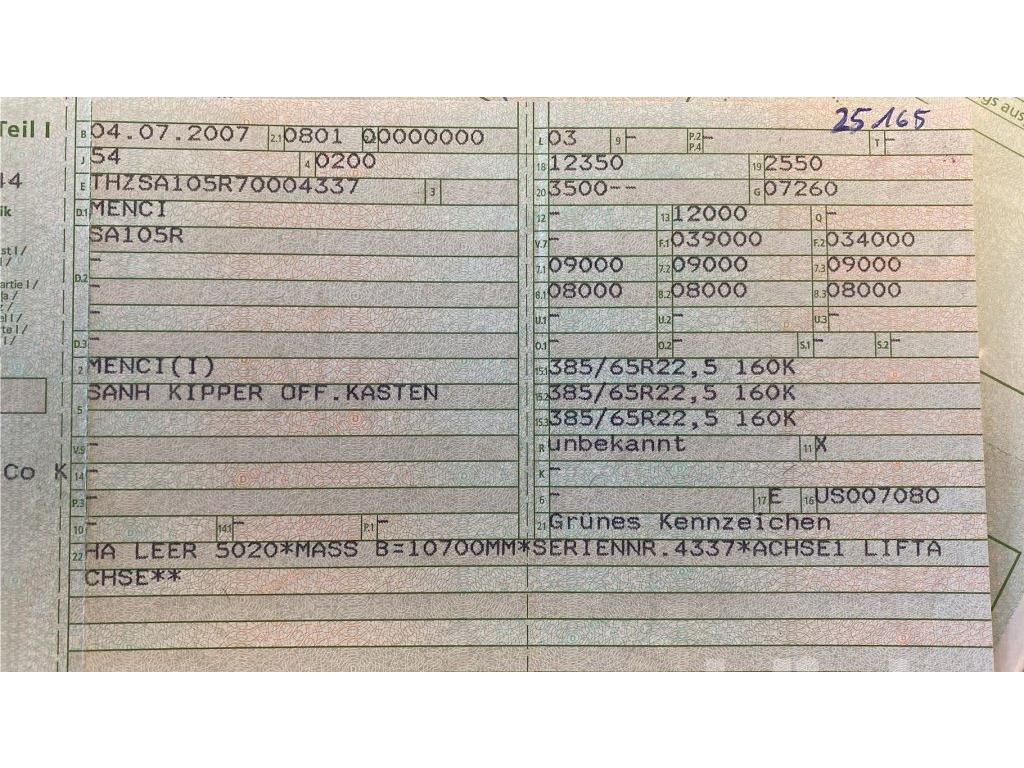 25.165
Teil I
B 04.07.2007 2.1 0801 00000000 L 03 9 – P.2 P.4 – T –
J 54 4 0200 18 12350 19 2550
E THZSA105R70004337 3 20 3500-- G 07260
D.1 MENCI 12 – 13 12000 Q –
SA105R V.7 – F.1 039000 F.2 034000
D.2 – 7.1 09000 7.2 09000 7.3 09000
– 8.1 08000 8.2 08000 8.3 08000
– U.1 – U.2 – U.3 –
D.3 – O.1 – O.2 – S.1 – S.2 –
2 MENCI(I) 15.1 385/65R22,5 160K
5 SANH KIPPER OFF.KASTEN 15.2 385/65R22,5 160K
15.3 385/65R22,5 160K
V.9 – R unbekannt 11 X
Co K 14 – K –
P.3 – 6 – 17 E 16 US007080
10 – 14.1 – P.1 – 21 Grünes Kennzeichen
22 HA LEER 5020*MASS B=10700MM*SERIENNR.4337*ACHSE1 LIFTA
CHSE**